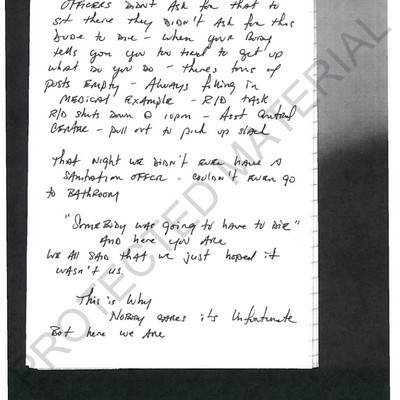 OFFICERS DIDN'T ASK for that to
sit there they DIDN'T ASK for this
DUDE to DIE - when your BODY
tells you you too tired to get up
what DO you DO - theres tons of
posts EMPTY - Always filling in
MEDICAL EXAMPLE - R/D TASK
R/D shuts Down @ 10pm - Asst Control
CENTRE - pull out to pick up slack
THAT Night WE DIDN'T EVEN HAVE A
SANITATION OFFCR - COULDN'T EVEN go
to BATHROOM
"SOMEBODY WAS going to HAVE to DIE"
AND here you ARE
WE All SAID that we just hoped it
WASN'T US
This is Why
NOBODY CARES its Unfortunate
But here we ARE
PROTECTED MATERIAL